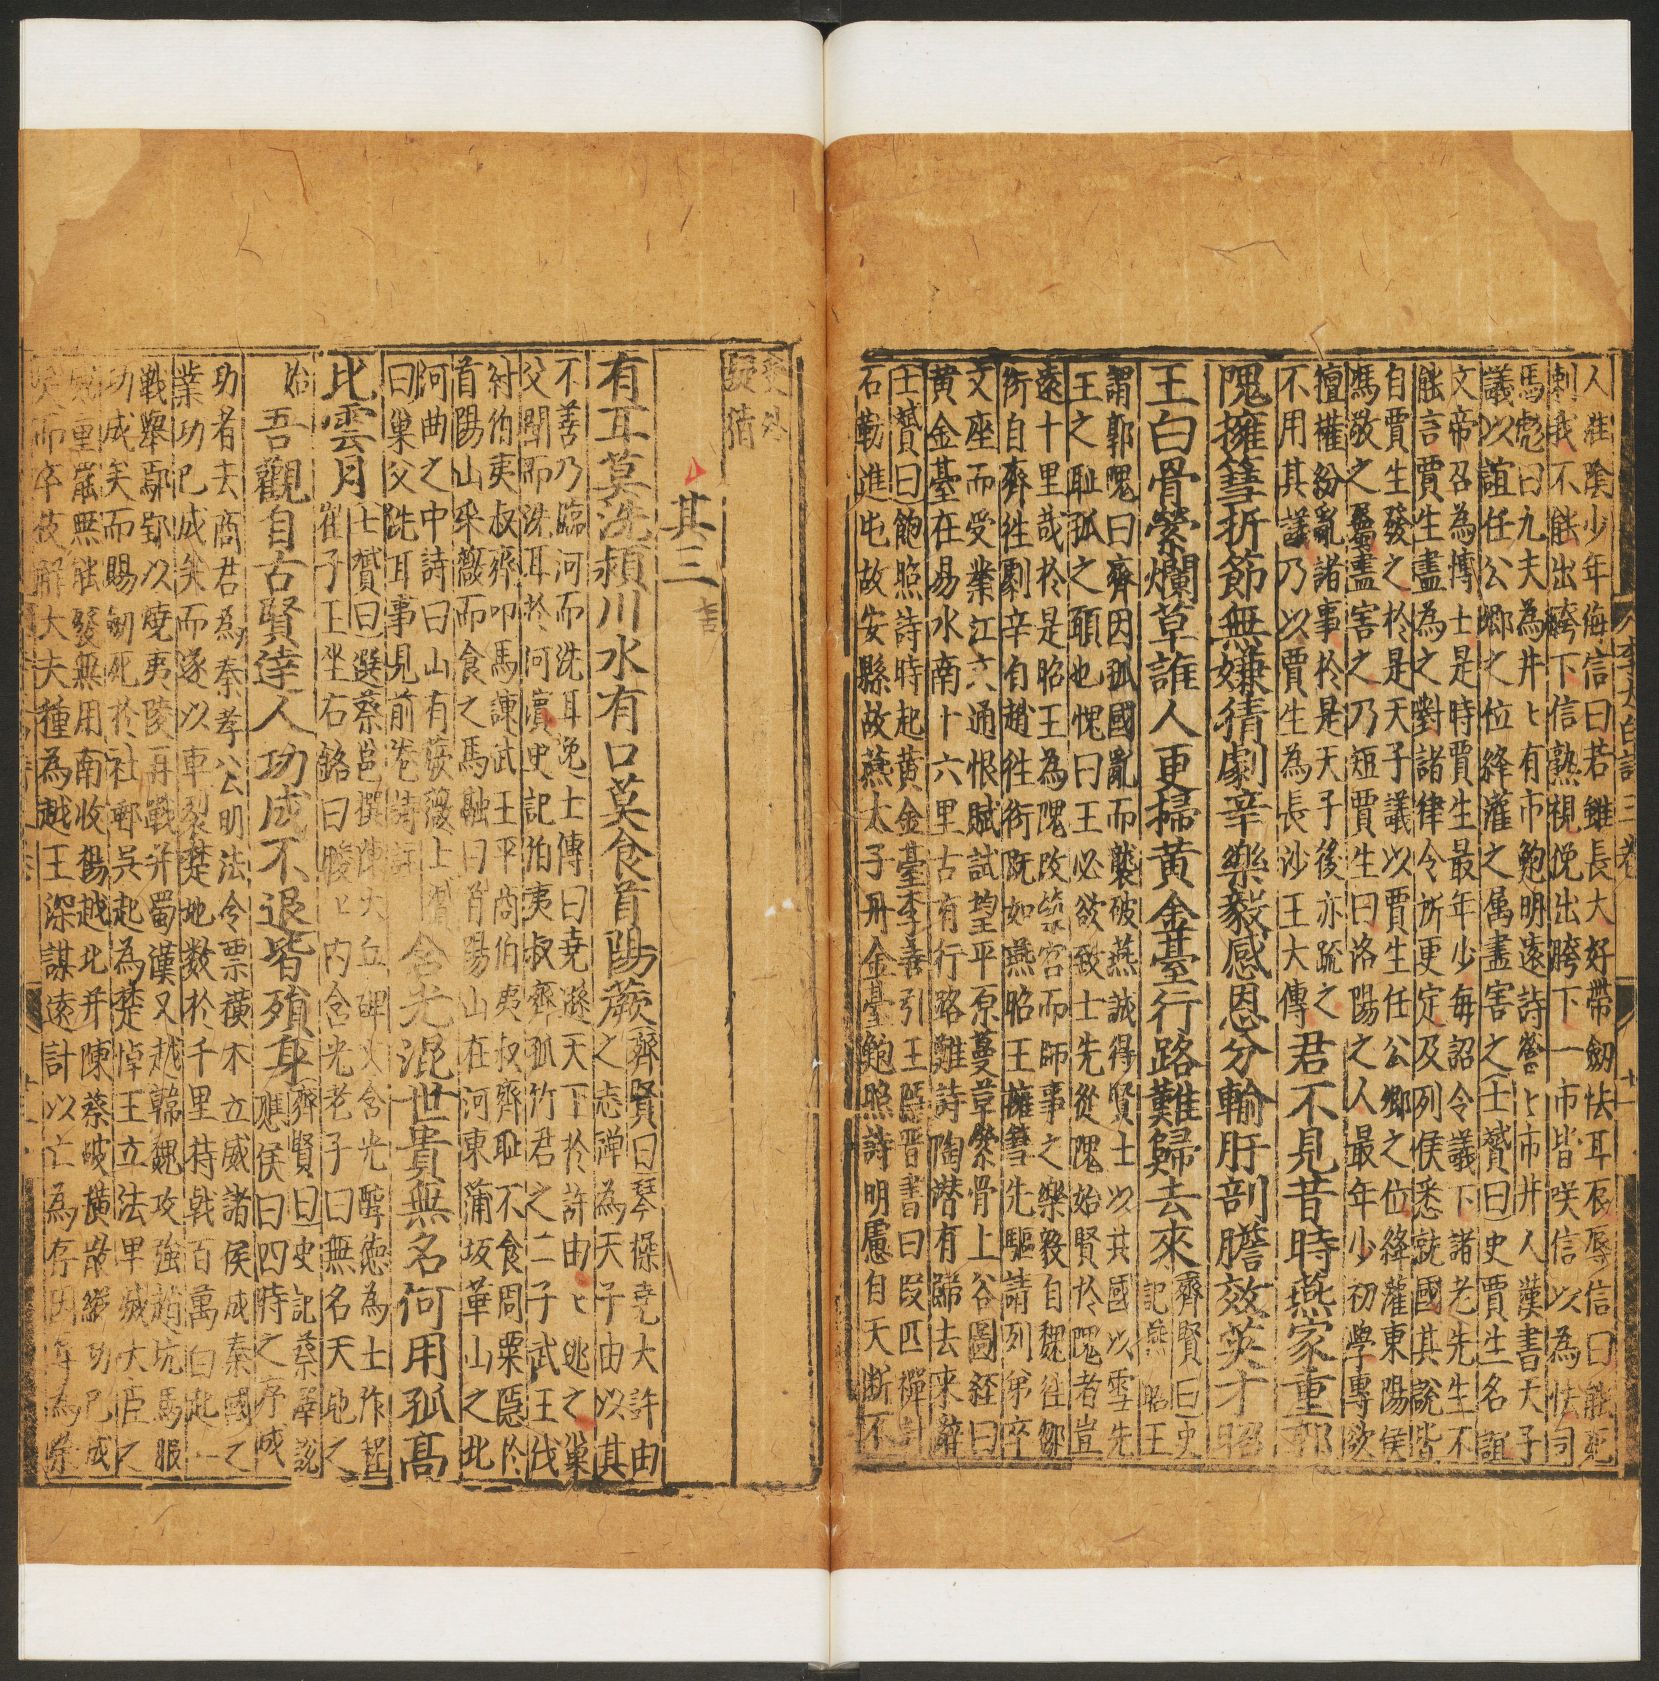 人淮陰少年侮信曰若雖長大好帶劒怯耳衆辱信曰能死
刺我不能出袴下信熟視俛出胯下一市皆咲信以為怯司
馬彪曰九夫為井〻有市鮑明遠詩答〻市井人漢書天子
議以誼任公卿之位絳灌之属盡害之士贇曰史賈生名誼
文帝召為博士是時賈生最年少每詔令議下諸老先生不
能言賈生盡為之對諸律令所更定及列侯悉就國其說皆
自賈生發之於是天子議以賈生任公卿之位絳灌東陽侯
馮敬之屬盡害之乃短賈生曰洛陽之人最年少初學專欲
擅權紛亂諸事於是天子後亦踈之
不用其議乃以賈生為長沙王大傅
君不見昔時燕家重郭
隗擁篲折節無嫌猜劇辛樂毅感恩分輸肝剖膽效英才昭
王白骨縈爛草誰人更掃黃金臺行路難歸去來
齊賢曰史
記燕昭王
謂郭隗曰齊因孤國亂而襲破燕誠得賢士以共國以雪先
王之耻孤之願也隗曰王必欲致士先從隗始賢於隗者豈
遠十里哉於是昭王為隗改築宮而師事之樂毅自魏往鄒
衍自齊往劇辛自趙往衍既如燕昭王擁篲先驅請列弟卒
文座而受業江六通恨賦試望平原蔓草縈骨上谷圖經曰
黄金臺在易水南十六里古有行路難詩陶潜有歸去來辭
士贇曰鮑照詩時起黄金臺李善引王隱晋書曰段匹磾討
石勒進屯故安縣故燕太子丹金臺鮑照詩明慮自天断不
受外
疑猜
其三
有耳莫洗潁川水有口莫食首陽蕨
齊賢曰琴操堯大許由
之志禪為天子由以其
不善乃臨河而洗耳逸士傳曰堯遜天下於許由〻逃之巢
父聞而洗耳於河濵史記伯夷叔齊孤竹君之二子武王伐
紂伯夷叔齊叩馬諫武王平商伯夷叔齊耻不食周粟隱於
首陽山采薇而食之馬融曰首陽山在河東蒲坂華山之北
河曲之中詩曰山有蕨薇士贇
曰巢父洗耳事見前卷詩註
含光混世貴無名何用孤高
比雲月
士贇曰選蔡邕撰陳大丘碑文含光醇德為士作程
崔子玉坐右銘曰曖〻内含光老子曰無名天地之
始
吾觀自古賢達人功成不退皆殞身
齊賢曰史記蔡澤說
應侯曰四時之序成
功者去商君為秦孝公明法令票橫木立威諸侯成秦國之
業功已成矣而遂以車裂楚地數於千里持戟百萬白起一
戰舉鄢郢以燒夷陵再戰并蜀漢又越韓魏攻強趙坑馬服
功成矣而賜劒死於社郵吳起為楚悼王立法卑减大臣之
威重罷無能發無用南收楊越北并陳蔡破橫散縱功已成
矣而卒枝解大夫種為越王深謀遠計以亡為存因辱為榮